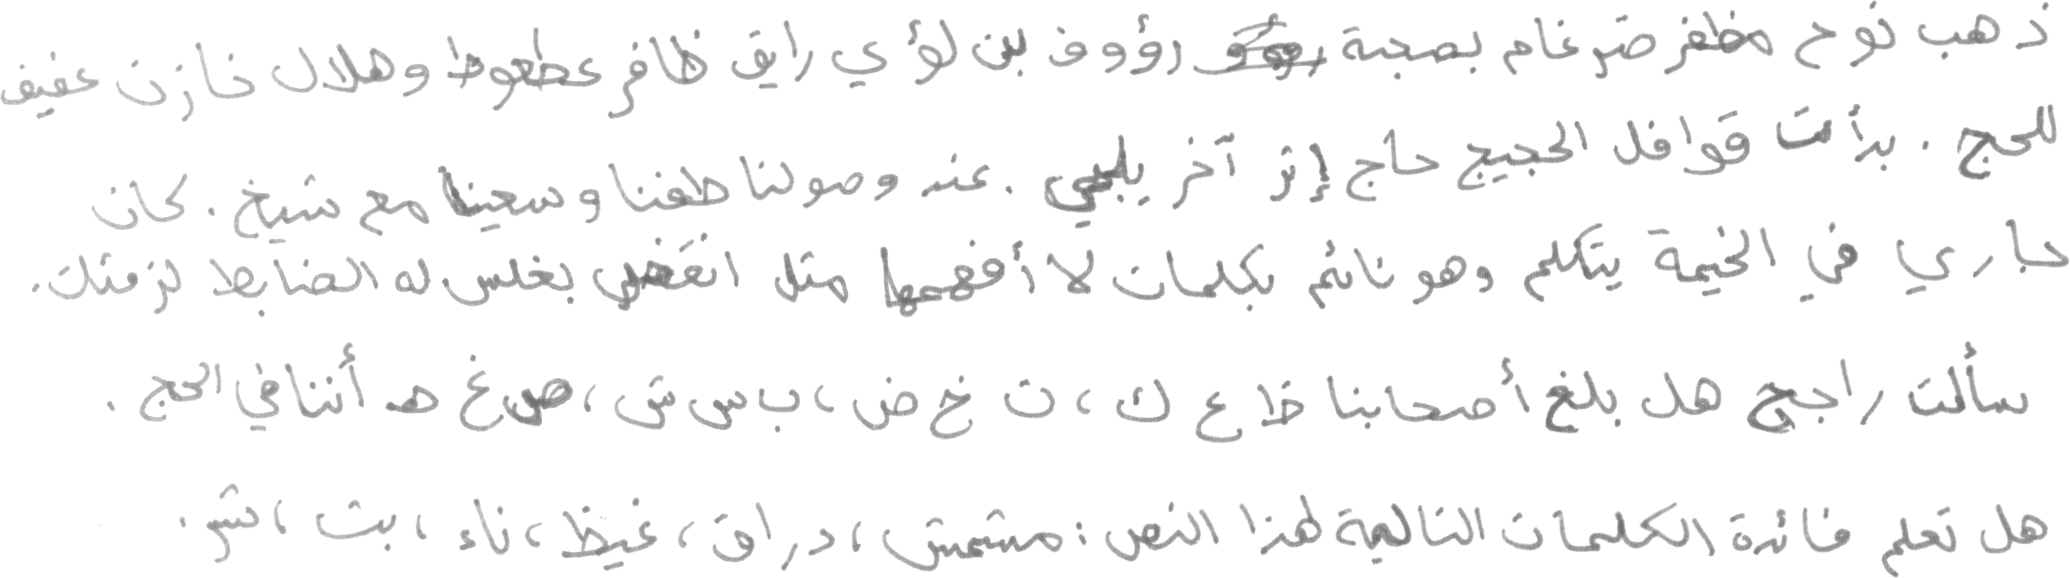 ذهب نوح مظفر ضرغام بصحبة رؤوف بن لؤي رايق ظافر عطعوط وهلال خازن عفيف
للحج . بدأت قوافل الحجيج حاج إثر آخر يلبي . عند وصولنا طفنا وسعينا مع شيخ . كان
جاري في الخيمة يتكلم وهو نائم بكلمات لا أفهمها مثل انغض بغلس له الضابط لزمتك.
سألت راجح هل بلغ أصحابنا ظ ع ك ، ث خ ض ، ب س ش ، ص غ ه أننا في الحج .
هل تعلم فائدة الكلمات التالية لهذا النص : مشمش ، دراق ، غيظ ، ناء ، بت ، شر .